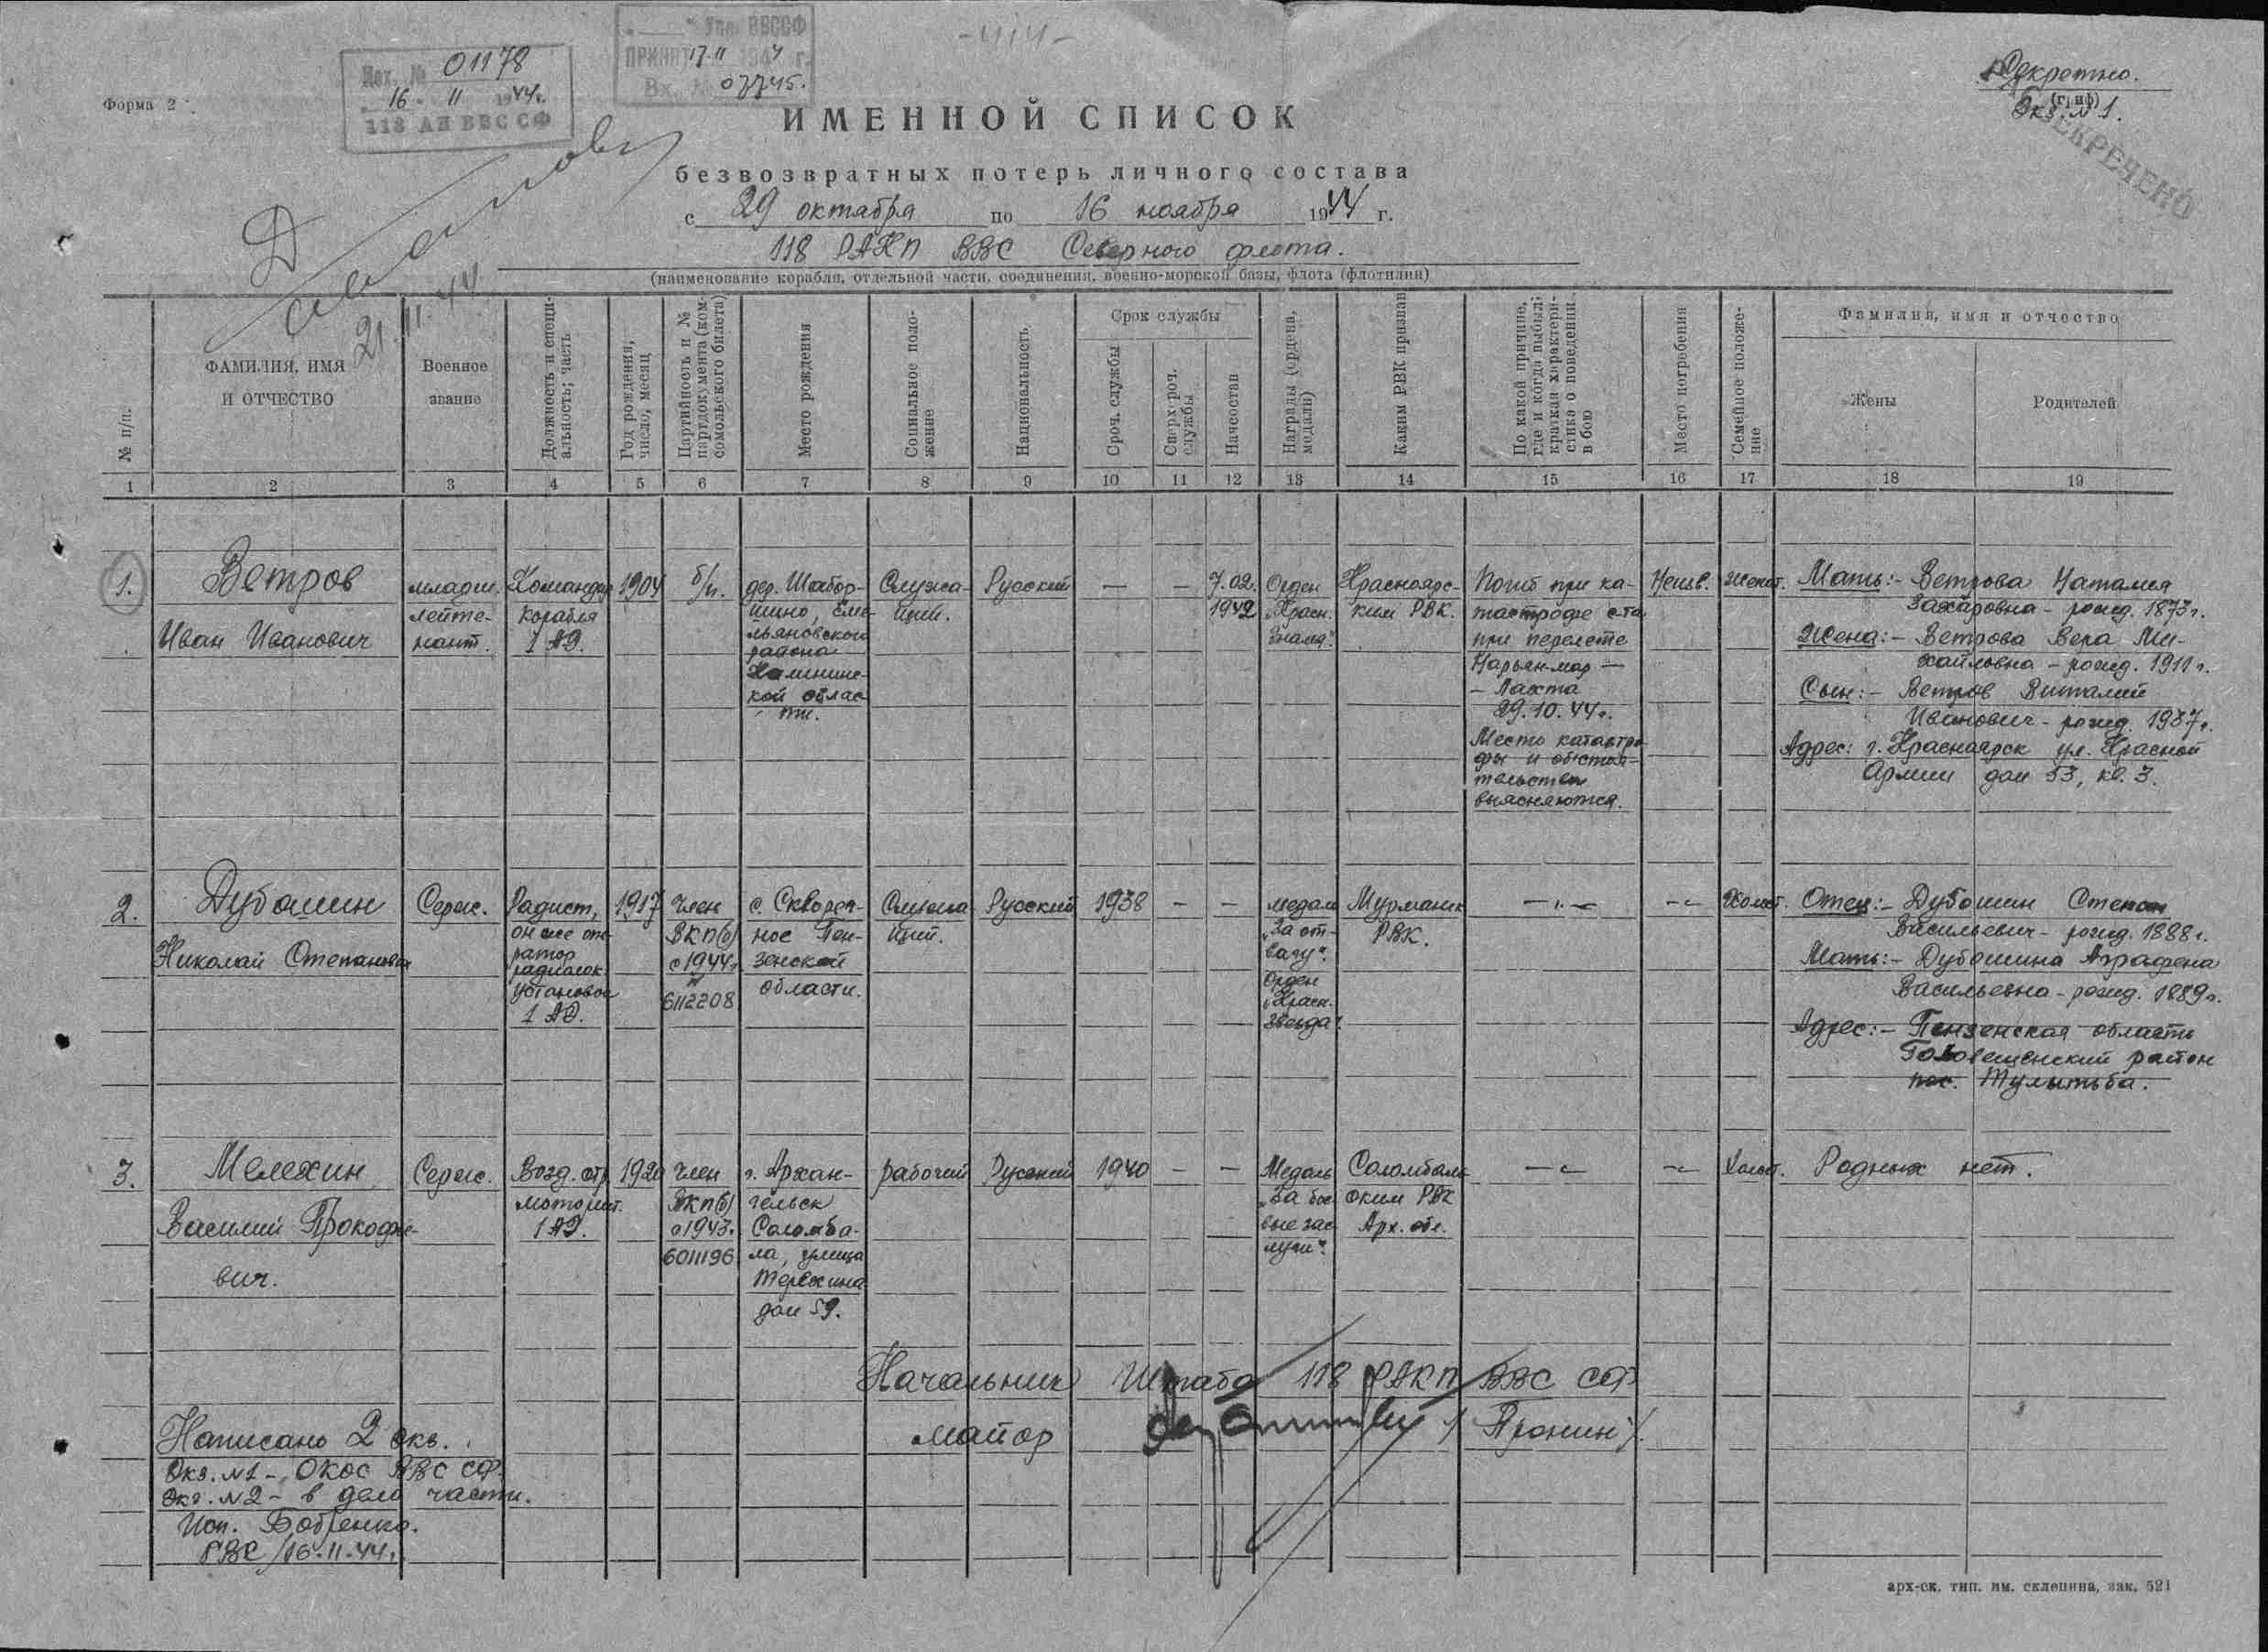 Форма 2
Исх. № 01178
16 - 11 1944г.
118 АП ВВС СФ
Упр. ВВССФ
ПРИНЯТ 17.11 1944 г.
Вх. № 07745.
Секретно.
(гриф)
Экз. № 1.
РАССЕКРЕЧЕНО
ИМЕННОЙ СПИСОК
безвозвратных потерь личного состава
с 29 октября по 16 ноября 1944 г.
118 РАКП ВВС Северного флота.
(наименование корабля, отдельной части, соединения, военно-морской базы, флота (флотилии)
21.11.44
№ п/п.
ФАМИЛИЯ, ИМЯ
И ОТЧЕСТВО
Военное
звание
Должность и специ-
альность; часть
Год рождения,
число, месяц
Партийность и №
партдокумента (ком-
сомольского билета)
Место рождения
Социальное поло-
жение
Национальность
Срок службы
Сроч. службы
Сверх-роч.
службы
Начсостав
Награды (ордена,
медали)
Каким РВК призван
По какой причине,
где и когда выбыл;
краткая характери-
стика о поведении
в бою
Место погребения
Семейное положе-
ние
Фамилия, имя и отчество
Жены
Родителей
1 2 3 4 5 6 7 8 9 10 11 12 13 14 15 16 17 18 19
1.
Ветров
Иван Иванович
младш.
лейте-
нант.
Командир
корабля
1 АЭ.
1904
б/п.
дер. Шабор-
шино, Еме-
льяновского
района
Калининс-
кой облас-
ти.
Служа-
щий.
Русский
—
—
7.02.
1942
Орден
"Красн.
Знамя".
Красноярс-
ким РВК.
Погиб при ка-
тастрофе с-та
при перелете
Нарьян-мар —
- Лахта
29.10.44г.
Место катастро-
фы и обстоя-
тельства
выясняются.
Неизв.
Женат.
Мать:- Ветрова Наталия
Захаровна - рожд. 1873г.
Жена:- Ветрова Вера Ми-
хайловна - рожд. 1911г.
Сын:- Ветров Виталий
Иванович - рожд. 1937г.
Адрес: г. Красноярск ул. Красной
Армии дом 53, кв. 3.
2.
Дубошин
Николай Степанович
Серж.
Радист,
он же опе-
ратор
радиолок.
установок
1 АЭ.
1917
Член
ВКП(б)
с 1944г.
№
6112208
с. Скворе-
ное Пен-
зенской
области.
Служа-
щий.
Русский
1938
-
-
медаль
"За от-
вагу".
Орден
"Красн.
Звезда".
Мурманск
РВК.
—"—
—"—
Холост.
Отец:- Дубошин Степан
Васильевич - рожд. 1888г.
Мать:- Дубошина Аграфена
Васильевна - рожд. 1889г.
Адрес:- Пензенская область
Головещенский район
пос. Тулытьба.
3.
Мелехин
Василий Прокофье-
вич.
Серж.
Возд. стр.
моторист.
1 АЭ.
1920
Член
ВКП(б)
с 1943г.
6011196
г. Архан-
гельск
Соломба-
ла, улица
Терехина
дом 59.
рабочий
Русский
1940
-
-
Медаль
"За бое-
вые зас-
луги".
Соломбаль-
ским РВК
Арх. обл.
—"—
—"—
Холост.
Родных нет.
Начальник Штаба 118 РАКП ВВС СФ
майор /Пронин/.
Написано 2 экз.
Экз. №1 - ОКОС ВВС СФ.
Экз. №2 - в дело части.
Исп. Бобренко.
16-11-44г.
арх-ск. тип. им. склепина, зак. 521